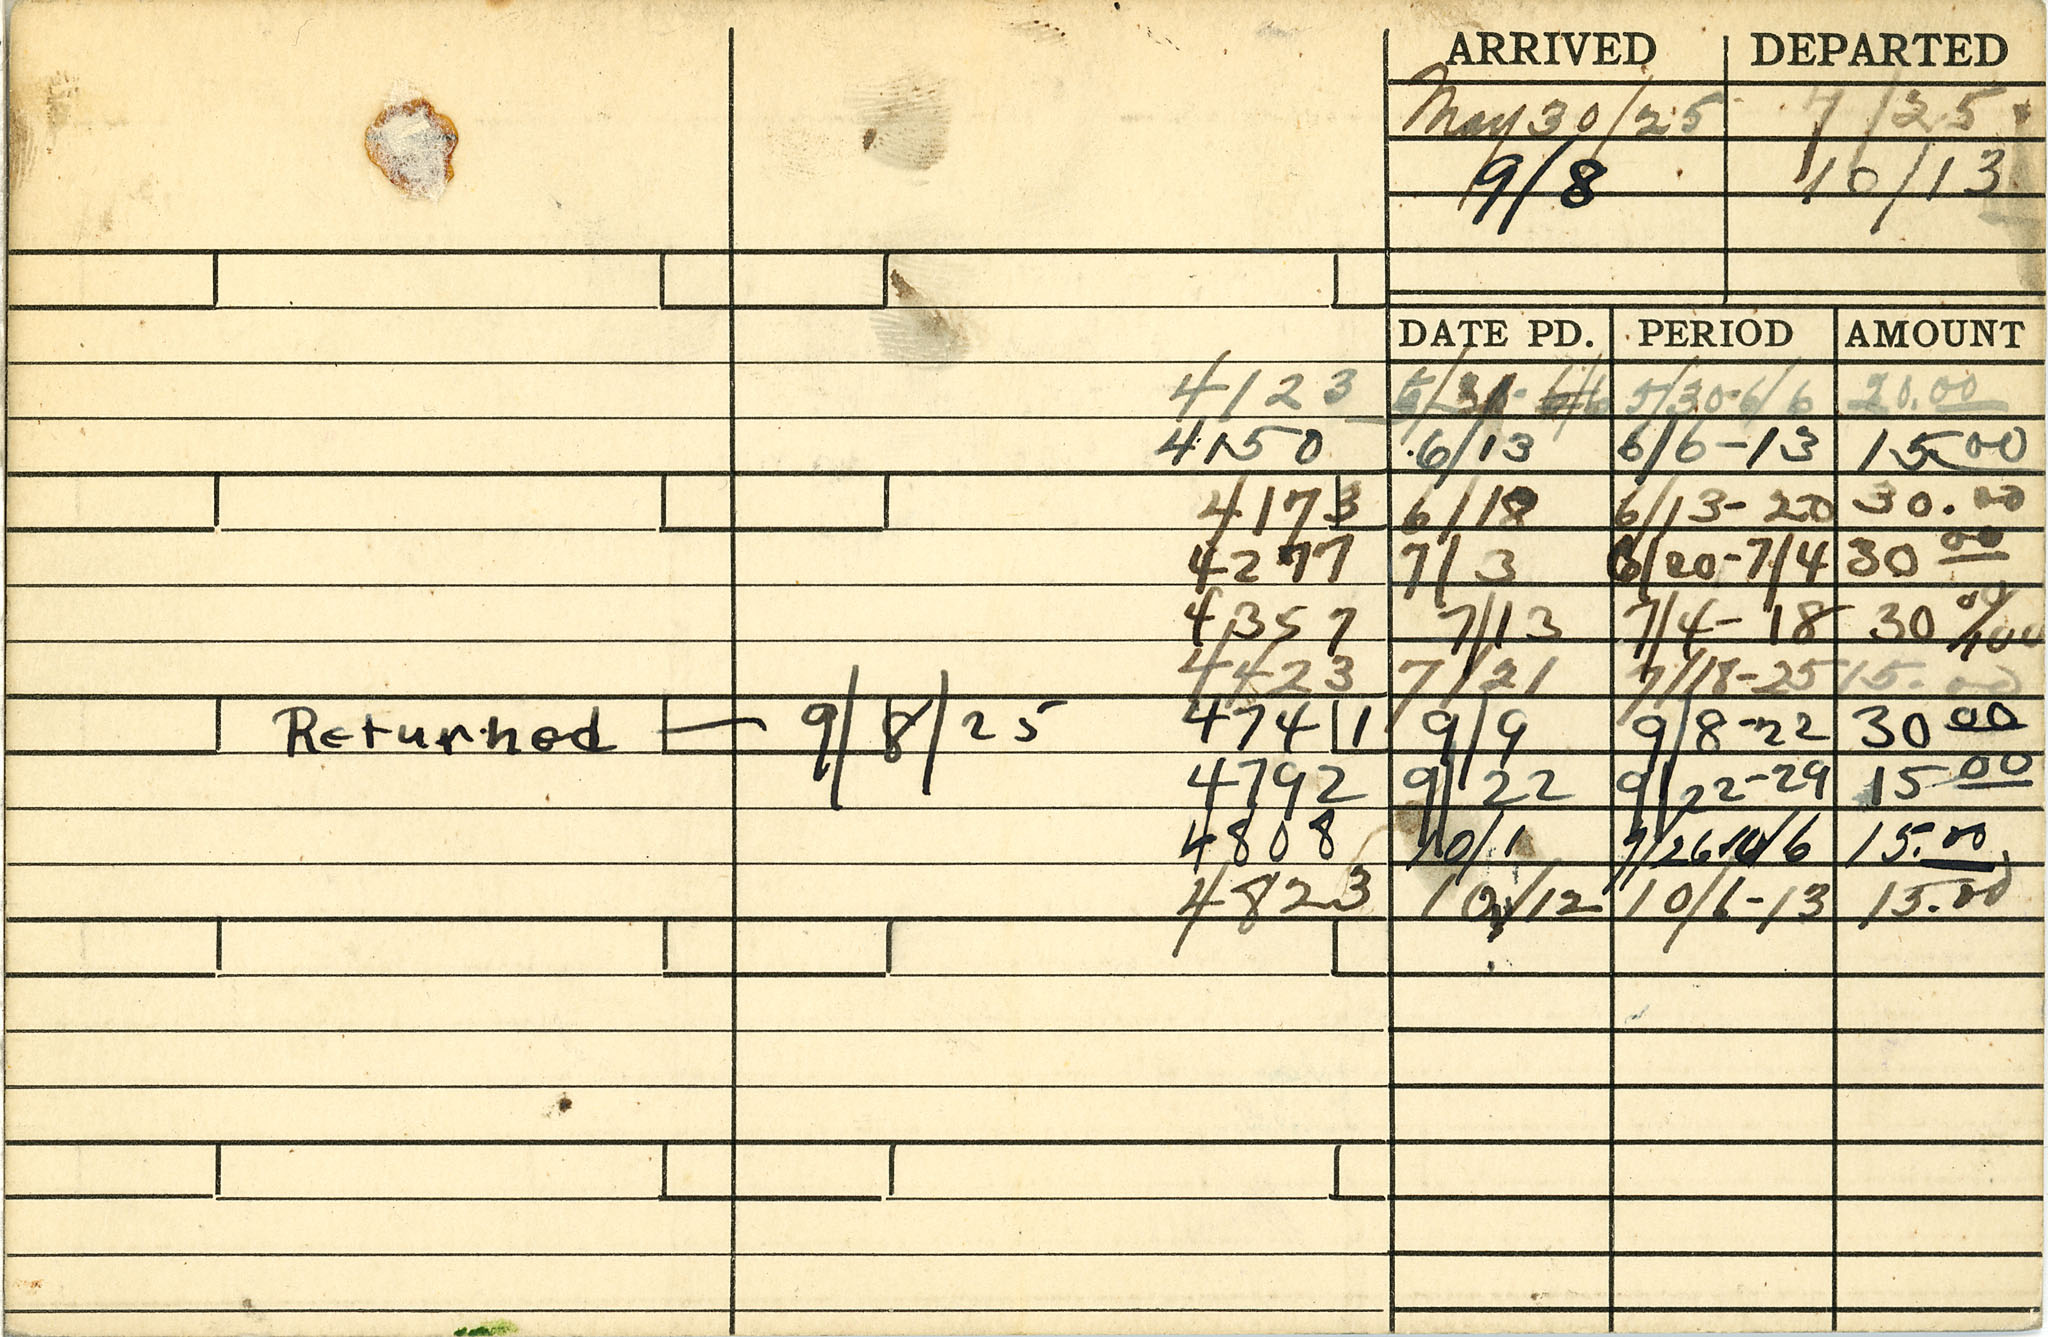 ARRIVED DEPARTED
May 30/25 7/25
9/8 10/13
DATE PD. PERIOD AMOUNT
4123 5/30-6/6 20.00
4150 6/13 6/6-13 15.00
4173 6/18 6/13-20 30.00
4277 7/3 6/20-7/4 30 00
4357 7/13 7/4-18 30 00/100
4423 7/21 7/18-25 15.00
Returned — 9/8/25 4741 9/9 9/8-22 30 00
4792 9/22 9/22-29 15 00
4808 10/1 15.00
4823 10/12 10/6-13 15.00